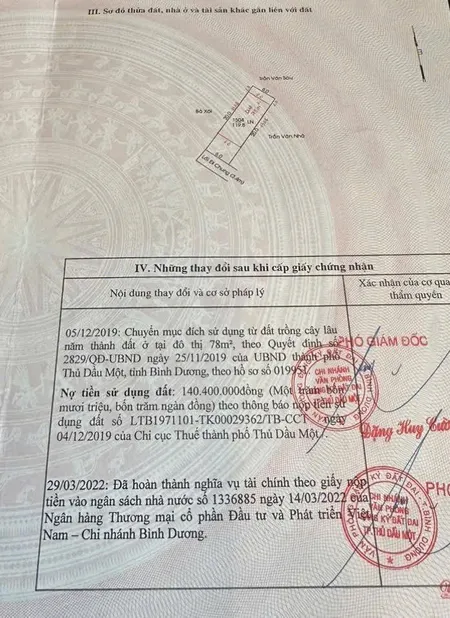 III. Sơ đồ thửa đất, nhà ở và tài sản khác gắn liền với đất
Trần Văn Sáu
6.0
Bà Xôi
Trần Văn Nhỏ
6.0
Lối Đi Chung (3,5m)
IV. Những thay đổi sau khi cấp giấy chứng nhận
Nội dung thay đổi và cơ sở pháp lý
Xác nhận của cơ qua
thẩm quyền
05/12/2019: Chuyển mục đích sử dụng từ đất trồng cây lâu
năm thành đất ở tại đô thị 78m², theo Quyết định số
2829/QĐ-UBND ngày 25/11/2019 của UBND thành phố
Thủ Dầu Một, tỉnh Bình Dương, theo hồ sơ số 01995.
Nợ tiền sử dụng đất: 140.400.000đồng (Một trăm bốn
mươi triệu, bốn trăm ngàn đồng) theo thông báo nộp tiền sử
dụng đất số LTB1971101-TK00029362/TB-CCT ngày
04/12/2019 của Chi cục Thuế thành phố Thủ Dầu Một.
PHÓ GIÁM ĐỐC
CHI NHÁNH
VĂN PHÒNG
ĐẤT ĐAI
TP.THỦ DẦU MỘT
T. BÌNH DƯƠNG
Đặng Huy
29/03/2022: Đã hoàn thành nghĩa vụ tài chính theo giấy nộp
tiền vào ngân sách nhà nước số 1336885 ngày 14/03/2022 của
Ngân hàng Thương mại cổ phần Đầu tư và Phát triển Việt
Nam – Chi nhánh Bình Dương.
PHÓ
VĂN PHÒNG ĐĂNG KÝ ĐẤT ĐAI - T. BÌNH DƯƠNG
CHI NHÁNH
VĂN PHÒNG
ĐĂNG KÝ ĐẤT ĐAI
TP.THỦ DẦU MỘT